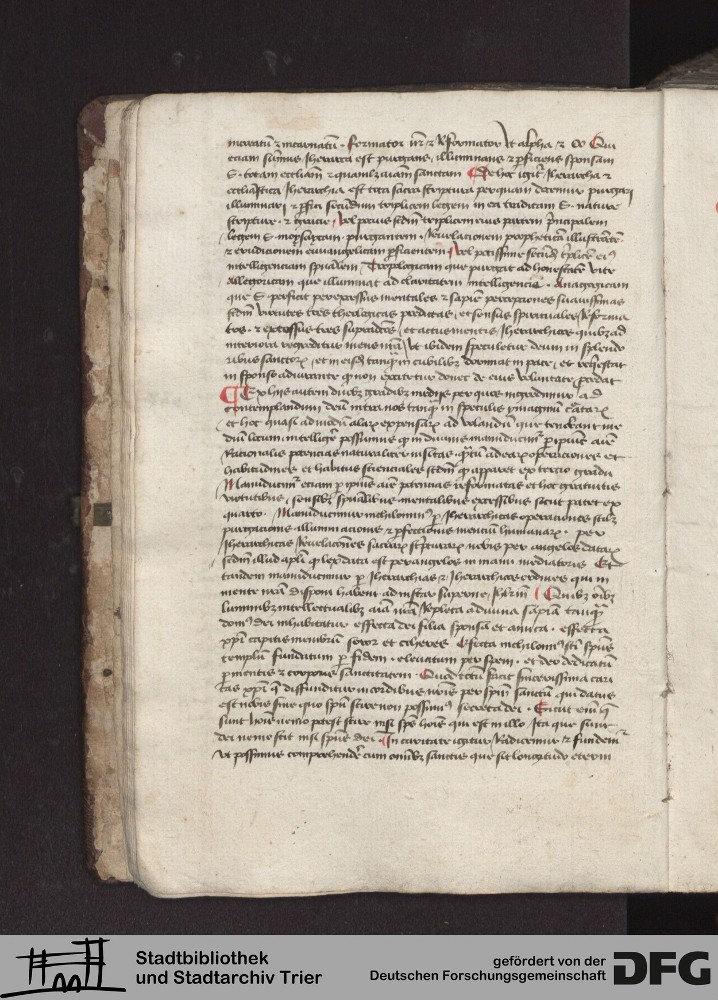 increatum et incarnatum. formator noster et Reformator et alpha et oo Qui
eciam summus Iherarcha est purgans, illuminans et perficiens sponsam
s. totam ecclesiam et quamlibet animam sanctam De hoc igitur Iherarcha et
ecclesiastica Iherarchia est tota sacra scriptura per quam docemur purgari
illuminari et perfici secundum triplicem legem in ea traditam s. nature
scripture et gracie vel pocius secundum triplicem eius partem principalem
legem s. moysaycam purgantem. Reuelacionem propheticam illustrantem
et erudicionem euuangelicam perficientem vel potissime secundum triplicem eius
intelligenciam spiritualem Tropologicam que purgat ad honestatem vite
Allegoricam que illuminat ad claritatem intelligencie Anagogicam
que s. perficit per excessus mentales et sapiencie percepciones suauissimas
secundum virtutes tres theologicas predictas, et sensus spirituales Reforma
tos. et excessus tres supradictos et actus mentis Iherarchicos quibus ad
interiora regreditur mens nostra vt ibidem speculetur deum in splendo
ribus sanctorum, et in eisdem tanquam in cubilibus dormiat in pace, et requiescat
in sponso adiurante quod non excitetur donec de eius voluntate prodeat
Ex hiis autem duobus gradibus medijs per quos ingredimur ad
contemplandum deum intra nos tanquam in speculis ymaginum creatarum
et hoc quasi ad modum alarum expansarum ad volandum que tenebant me
dium locum. intelligere possumus quod in diuina manuducimur per ipsius anime
Racionalis potencias naturaliter insitas quantum ad earum operaciones et
habitudines et habitus scienciales secundum quod apparet ex tercio gradu
Manuducimur eciam per ipsius anime potencias reformatas et hoc gratuitis
virtutibus, sensibus spiritualibus mentalibus excessibus sicut patet ex
quarto. Manuducimur nichilominus per Iherarchicas operaciones scilicet
purgacionis illuminacionis et perfectionis mencium humanarum. per
Iherarchicas Reuelaciones sacrarum scripturarum nobis per angelos datarum
secundum illud apostoli quod lex data est per angelos in manu mediatoris Et
tandem manuducimur per Iherarchias et Iherarchicos ordines qui in
mente nostra disponi habent ad instar superne Ihrlm Quibus omnibus
luminibus intellectualibus anima nostra Repleta a diuina sapiencia tanquam
domus dei inhabitatur effecta dei filia sponsa et amica. effecta
xpi capitis membrum soror et coheres Effecta nichilominus sancti spiritus
templum fundatum per fidem. eleuatum per spem. et deo dedicatum
per mentis et corporis sanctitatem. Quod totum facit sincerissima cari
tas xpi que diffunditur in cordibus nostris per spiritum sanctum qui datus
est nobis sine quo spiritu scire non possumus secreta dei. Sicut enim que
sunt hominis nemo potest scire nisi spiritus hominis qui est in illo. Ita que sunt
dei nemo scit nisi spiritus dei. In caritate igitur Radicemur et fundemur
vt possimus comprehendere cum omnibus sanctis que sit longitudo eterni
Stadtbibliothek
und Stadtarchiv Trier
gefördert von der
Deutschen Forschungsgemeinschaft
DFG